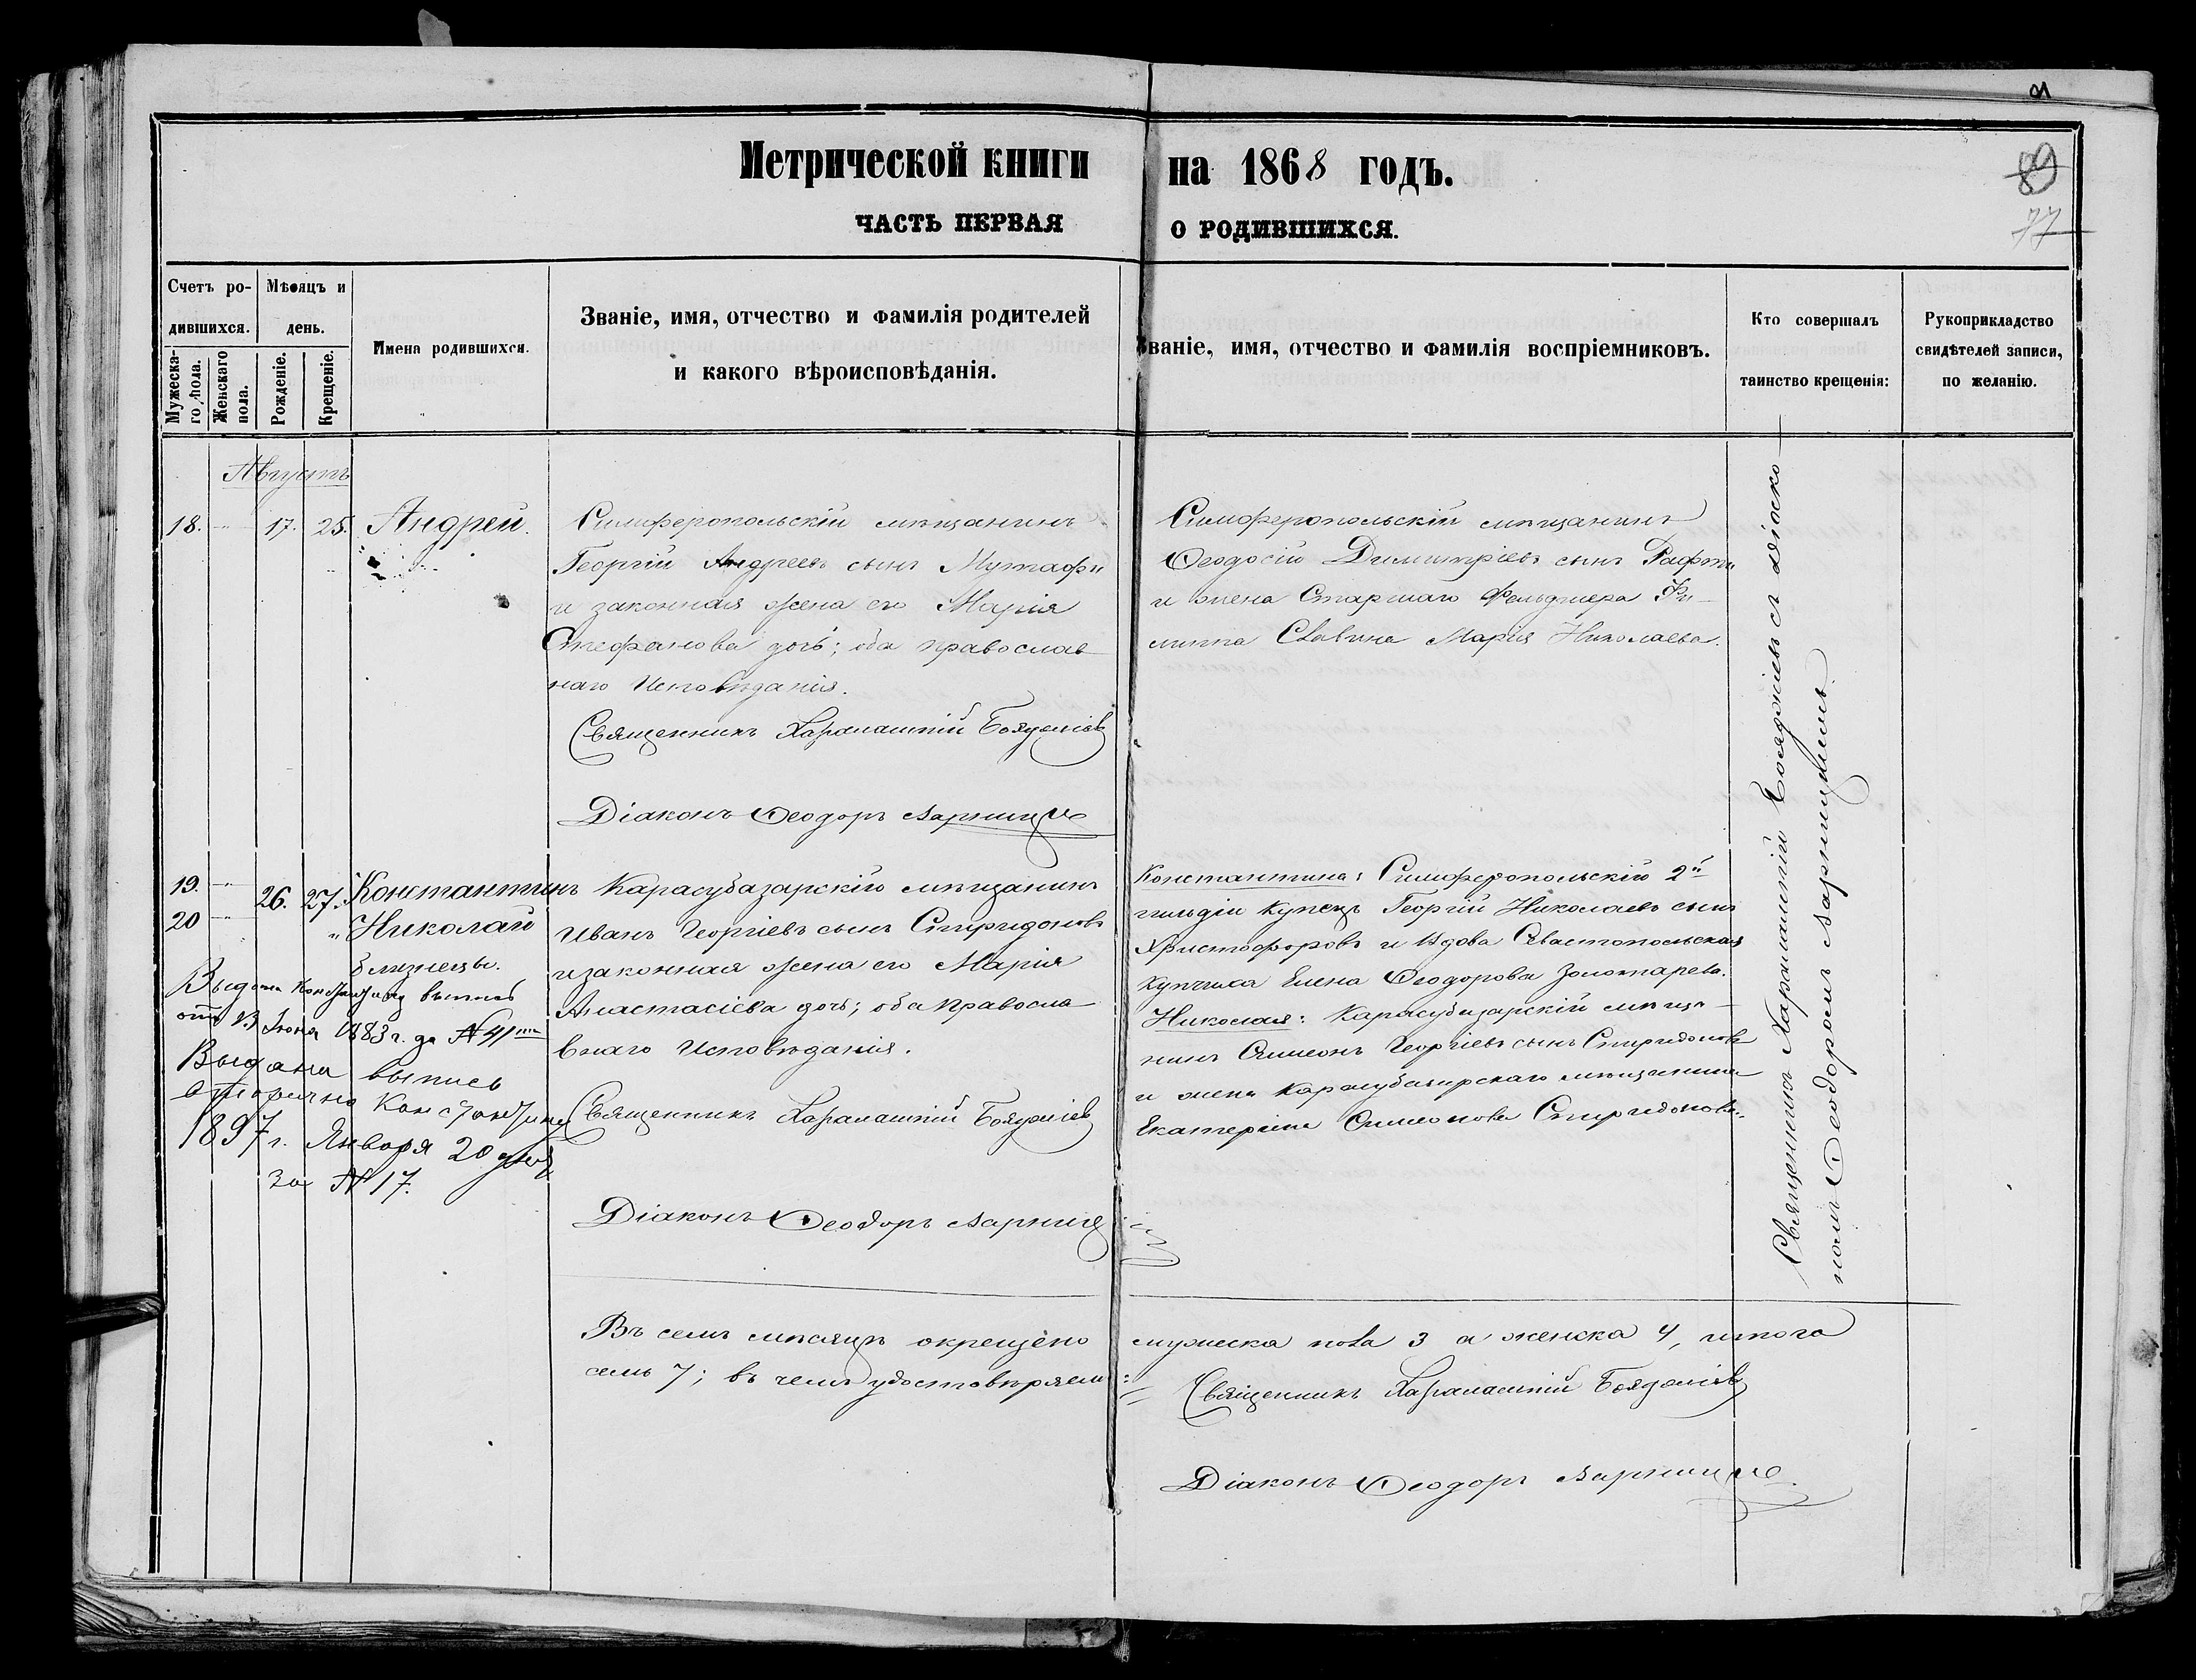 Метрической книги на 1868 годъ.
ЧАСТЬ ПЕРВАЯ О РОДИВШИХСЯ.
89
77
Счетъ ро-
дившихся.
Мужеска-
го пола.
Женскаго
пола.
Мѣсяцъ и
день.
Рожденіе.
Крещеніе.
Имена родившихся.
Званіе, имя, отчество и фамилія родителей
и какого вѣроисповѣданія.
Званіе, имя, отчество и фамилія воспріемниковъ.
Кто совершалъ
таинство крещенія:
Рукоприкладство
свидѣтелей записи,
по желанію.
Августъ
18. 17. 25. Андрей.
Симферопольскій мѣщанинъ
Георгій Андреевъ сынъ Мутафи
и законная жена его Марія
Стефанова дочь; оба православ
наго Исповѣданія.
Священникъ Харалампій
Діаконъ Ѳеодоръ
Симферопольскій мѣщанинъ
Ѳеодосій Димитріевъ сынъ
и жена Старшаго Фельдшера Фи-
липпа Савина Марія Николаева.
19. 26. 27. Константинъ
20 " Николай
близнецы.
Карасубазарскій мѣщанинъ
Иванъ Георгіевъ сынъ Спиридоновъ
и законная жена его Марія
Анастасіева дочь; оба правосла
внаго Исповѣданія.
Священникъ Харалампій
Діаконъ Ѳеодоръ
Константина: Симферопольскій 2й
гильдіи купецъ Георгій Николаевъ сынъ
Христофоровъ и вдова Севастопольская
купчиха Елена Ѳеодорова Золотарева.
Николая: Карасубазарскій мѣща-
нинъ Симеонъ Георгіевъ сынъ Спиридоновъ
и жена Карасубазарскаго мѣщанина
Екатерина Симеонова Спиридонова.
Выдана Константину выпись
Іюня 1883 г. за № 41
Выдана выпись
вторично Константину
1897 г. Января 20 дня
за № 17.
Священникъ Харалампій съ діако-
номъ Ѳеодоромъ
Въ семъ мѣсяцѣ окрещено мужеска пола 3 а женска 4, итого
семь 7; въ чемъ удостовѣряемъ:
Священникъ Харалампій
Діаконъ Ѳеодоръ